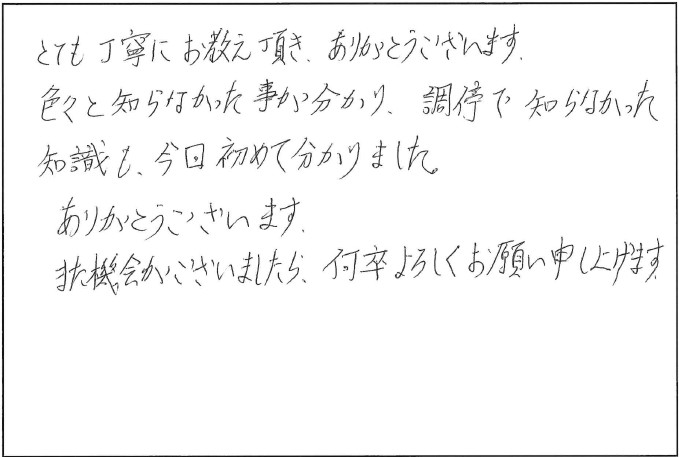 とても丁寧にお教え頂き、ありがとうございます。
色々と知らなかった事が分かり、調停で知らなかった
知識も、今回初めて分かりました。
ありがとうございます。
また機会がございましたら、何卒よろしくお願い申し上げます